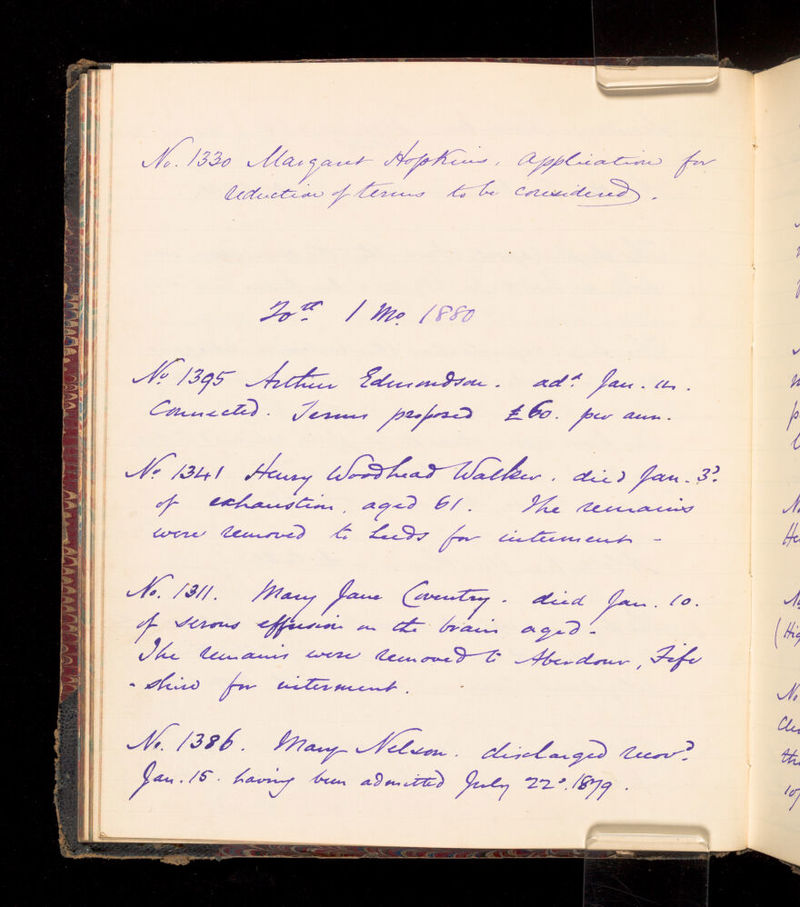 No. 1330 Margaret Hopkins. Application for
reduction of terms to be considered.
20th 1 Mo. 1880
No. 1395 Arthur Edmondson. add. Jan. 14.
Connected. Terms proposed £60. per ann.
No. 1341 Henry Woodhead Walker. died Jan. 3d.
of exhaustion, aged 61. The remains
were removed to Leeds for interment -
No. 1311. Mary Jane Coventry. died Jan. 10.
of serous effusion on the brain aged -
The remains were removed to Aberdour, Fife
-shire for interment.
No. 1386. Mary Nelson. discharged recovd.
Jan. 15. having been admitted July 22d. 1879.
No
He
No
(Hig
No